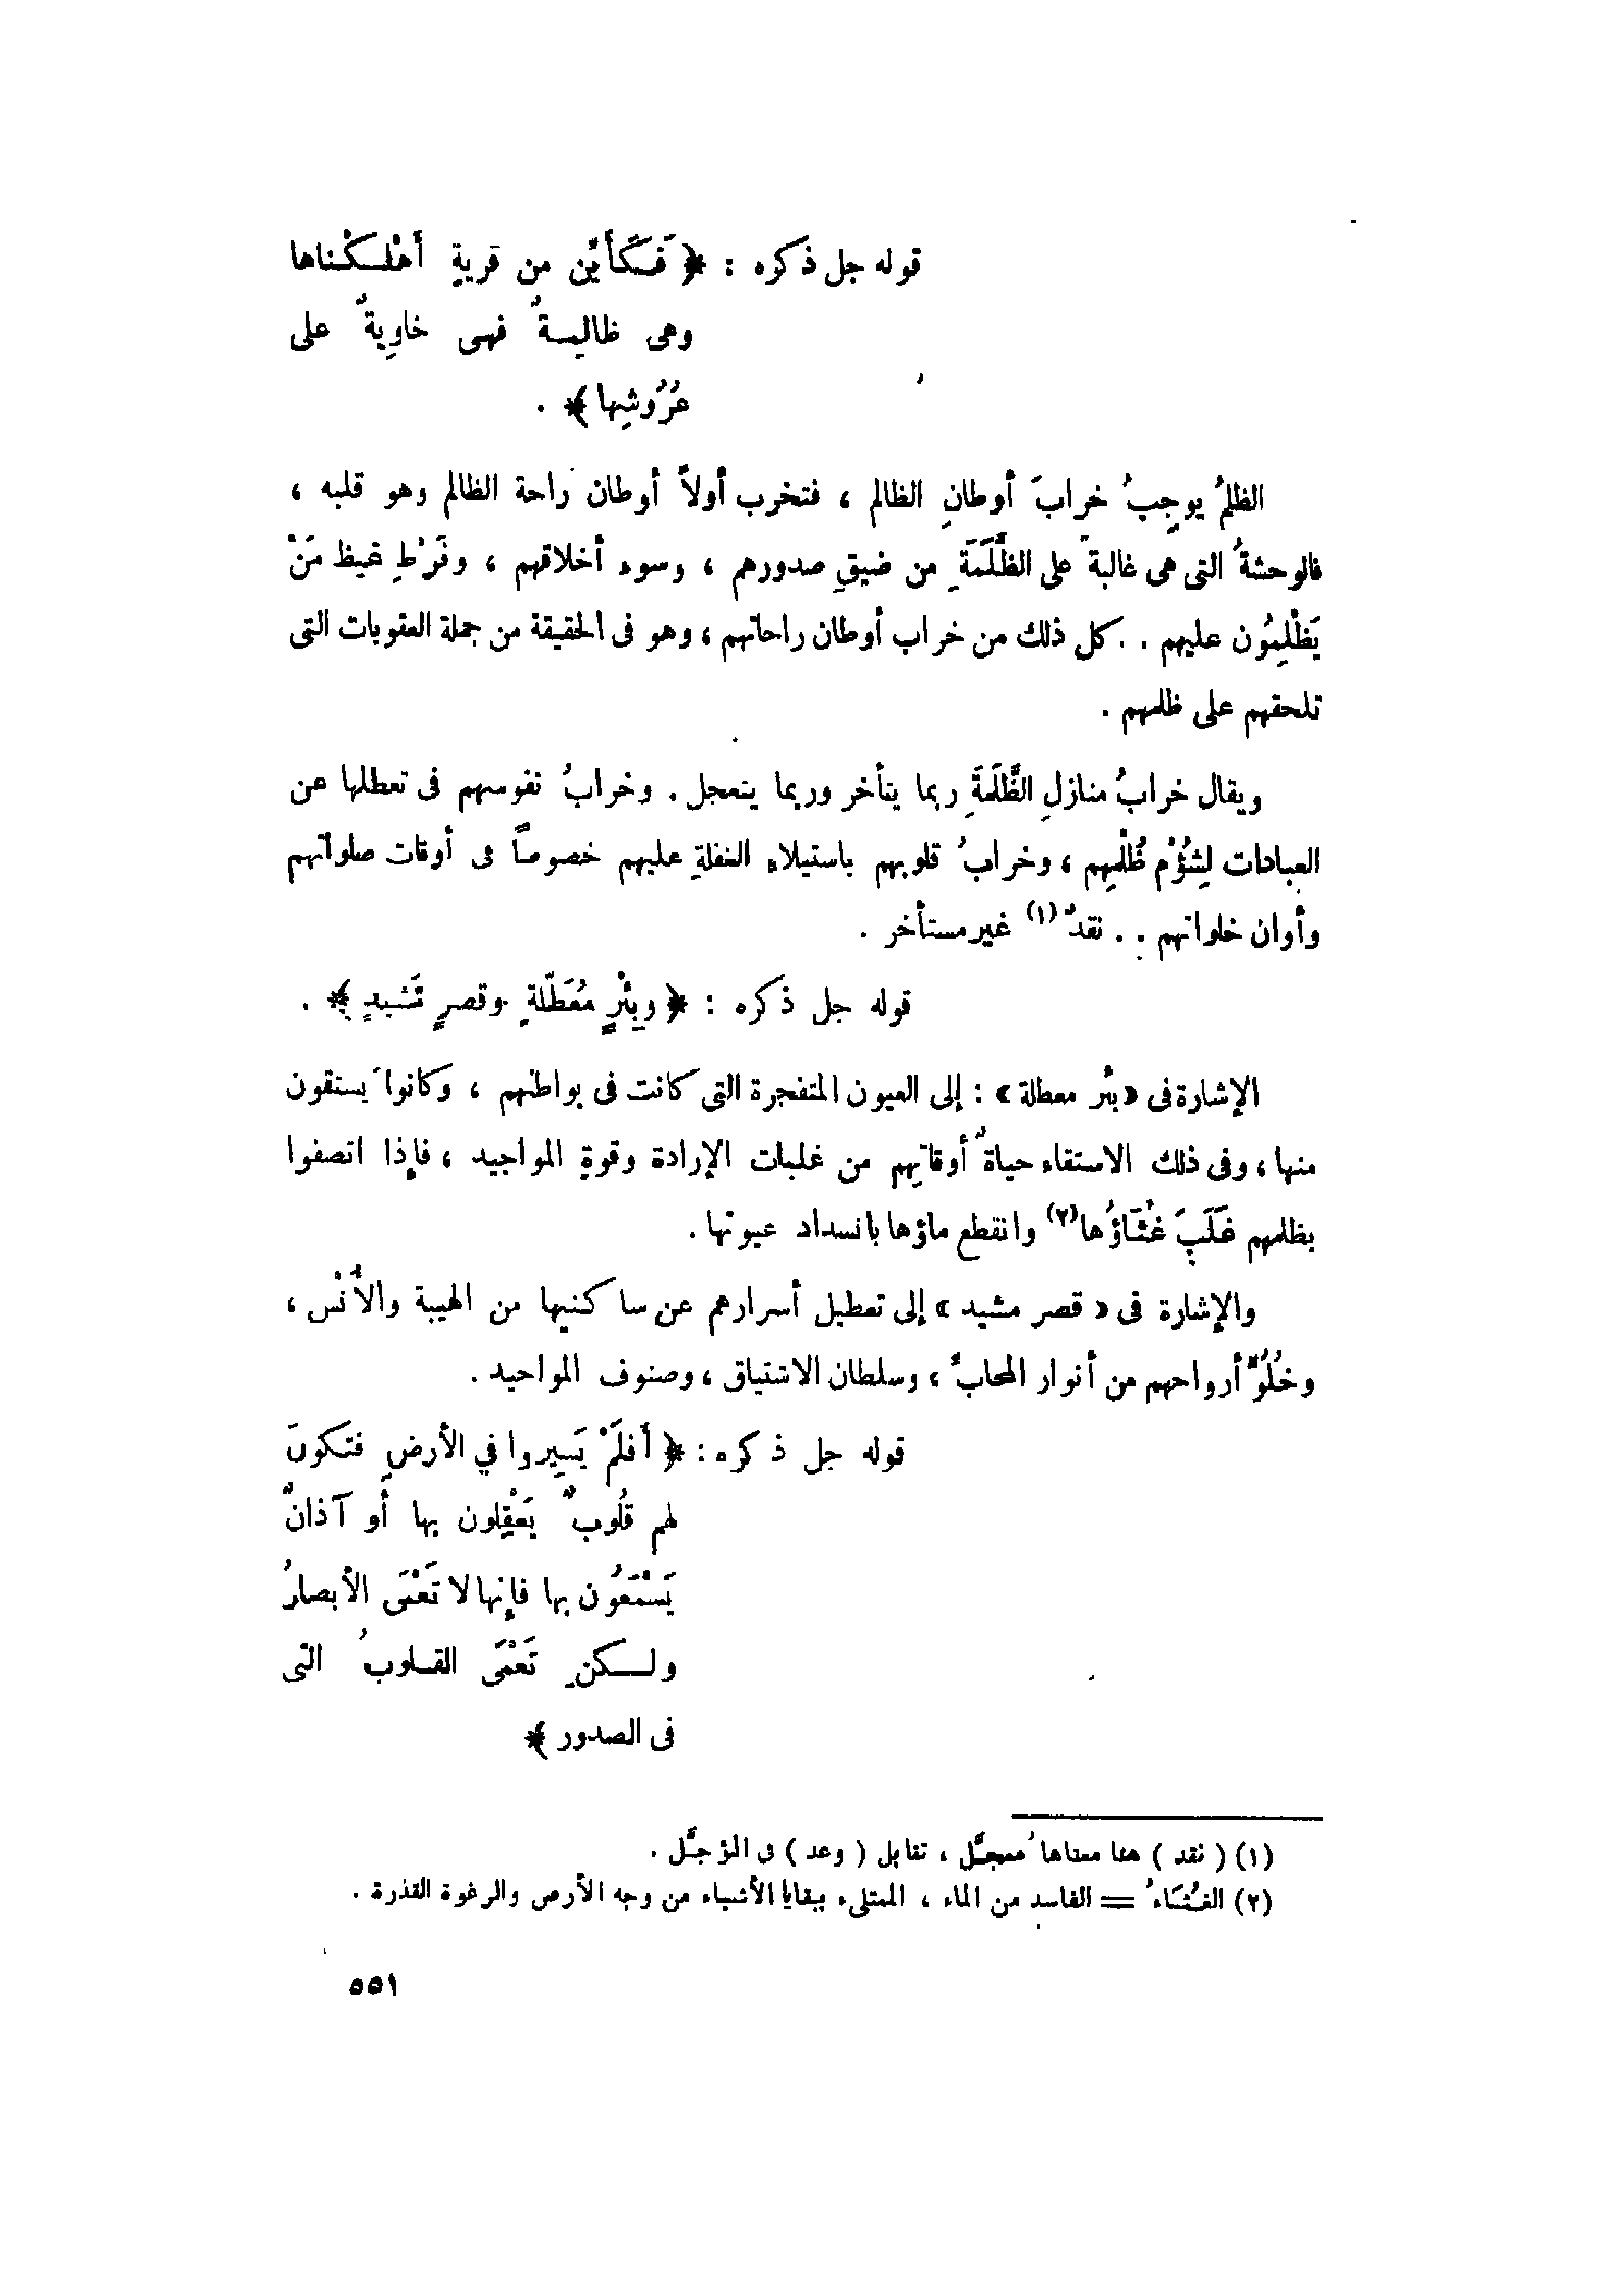 قوله جل ذكره : ﴿ فَكَأَيِّن من قريةٍ أهْلَـكْناها
وهى ظالِمـةٌ فهى خاوِيةٌ على
عُرُوشِها ﴾ .
الظلمُ يوجِبُ خرابَ أوطانِ الظالم ، فتخرب أولاً أوطان راحة الظالم وهو قلبه ،
فالوحشةُ التى هى غالبة على الظَّلَمَةِ من ضيقِ صدورهم ، وسوء أخلاقهم ، وفَرْطِ غيظ مَنْ
يَظْلِمُون عليهم . . كل ذلك من خراب أوطان راحاتهم ، وهو فى الحقيقة من جملة العقوبات التى
تلحقهم على ظلمهم .
ويقال خرابُ منازلِ الظَّلَمَةِ ربما يتأخر وربما يتعجل . وخرابُ نفوسهم فى تعطلها عن
العبادات لِشُؤْم ظُلْمِهم ، وخرابُ قلوبهم باستيلاء الغفلةِ عليهم خصوصاً فى أوقات صلواتهم
وأوان خلواتهم . . نقدٌ (١) غير مستأخر .
قوله جل ذكره : ﴿ وبِئْرٍ مُعَطَّلةٍ وقصرٍ مَّشيدٍ ﴾ .
الإشارة فى « بئر معطلة » : إلى العيون المتفجرة التى كانت فى بواطنهم ، وكانوا يستقون
منها ، وفى ذلك الاستقاء حياةُ أوقاتِهم من غلبات الإرادة وقوةِ المواجيد ، فإذا اتصفوا
بظلمهم غَلَبَ غُثَاؤُها (٢) وانقطع ماؤها بانسداد عيونها .
والإشارة فى « قصر مشيد » إلى تعطيل أسرارهم عن ساكنيها من الهيبة والأُنْس ،
وخُلُوِّ أرواحهم من أنوار المحابِّ ، وسلطان الاشتياق ، وصنوف المواجيد .
قوله جل ذكره : ﴿ أفلَمْ يَسِيروا في الأرضِ فتكونَ
لهم قُلوبٌ يَعْقِلون بها أو آذانٌ
يَسْمَعُون بها فإنها لا تَعْمَى الأبصارُ
ولـكن تَعْمَى القـلوبُ التى
فى الصدور ﴾
(١) ( نقد ) هنا معناها مُعجَّل ، تقابل ( وعد ) فى المؤجَّل .
(٢) الغُثَاءُ = الفاسد من الماء ، الممتلىء ببقايا الأشياء من وجه الأرض والرغوة القذرة .
٥٥١